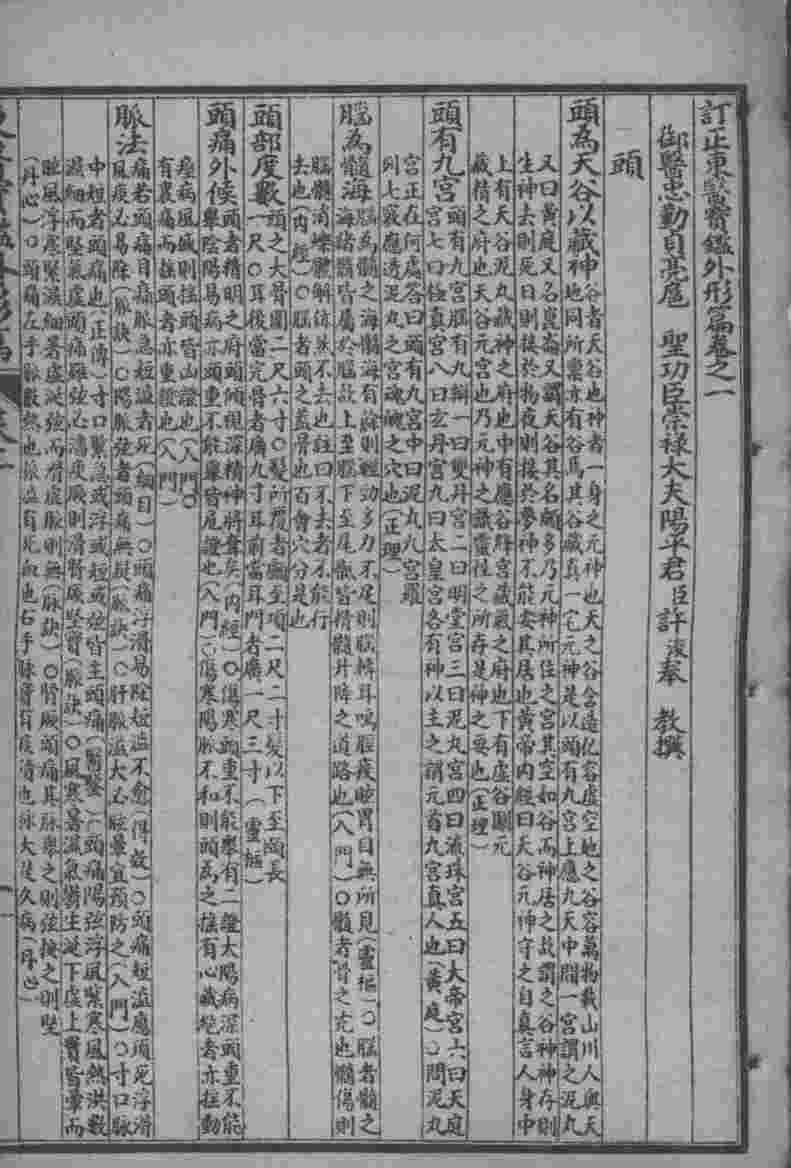 訂正東醫寶鑑外形篇卷之一
御醫忠勤貞亮扈 聖功臣崇祿大夫陽平君臣許浚奉 教撰
頭
頭為天谷以藏神
谷者天谷也神者一身之元神也天之谷含造化容虛空地之谷容萬物載山川人與天
地同所稟亦有谷焉其谷藏真一宅元神是以頭有九宮上應九天中間一宮謂之泥丸
又曰黃庭又名崑崙又謂天谷其名頗多乃元神所住之宮其空如谷而神居之故謂之谷神神存則
生神去則死日則接於物夜則接於夢神不能安其居也黃帝內經曰天谷元神守之自真言人身中
上有天谷泥丸藏神之府也中有應谷絳宮藏氣之府也下有虛谷關元
藏精之府也天谷元宮也乃元神之室靈性之所存是神之要也(正理)
頭有九宮
頭有九宮腦有九瓣一曰雙丹宮二曰明堂宮三曰泥丸宮四曰流珠宮五曰大帝宮六曰天庭
宮七曰極真宮八曰玄丹宮九曰太皇宮各有神以主之謂元首九宮真人也(黃庭)○問泥丸
宮正在何處答曰頭有九宮中曰泥丸九宮羅
列七竅應透泥丸之宮魂魄之穴也(正理)
腦為髓海
腦為髓之海髓海有餘則輕勁多力不足則腦轉耳鳴脛痠眩冒目無所見(靈樞)○腦者髓之
海諸髓皆屬於腦故上至腦下至尾骶皆精髓升降之道路也(入門)○髓者骨之充也髓傷則
腦髓消爍體解㑊然不去也註曰不去者不能行
去也(內經)○腦者頭之蓋骨也百會穴分是也
頭部度數
頭之大骨圍二尺六寸○髮所覆者顱至項二尺二寸髮以下至頤長
一尺○耳後當完骨者廣九寸耳前當耳門者廣一尺三寸(靈樞)
頭痛外候
頭者精明之府頭傾視深精神將奪矣(內經)○傷寒頭重不能舉有二證太陽病深頭重不能
舉陰陽易病亦頭重不能擧皆危證也(入門)○傷寒陽脈不和則頭為之搖有心藏絕者亦搖動
痙病風盛則搖頭皆凶證也(入門)○
有裏痛而搖頭者亦重證也(入門)
脈法
痛若頭痛目痛脈急短澁者死(綱目)○頭痛浮滑易除短澁不愈(得效)○頭痛短澁應須死浮滑
風痰必易除(脈訣)○陽脈弦者頭痛無疑(脈訣)○肝脈溢大必眩暈宜預防之(入門)○寸口脈
中短者頭痛也(正傳)寸口緊急或浮或短或弦皆主頭痛(醫鑑)○頭痛陽弦浮風緊寒風熱洪數
濕細而堅氣虛頭痛雖弦必濇痰厥則滑腎厥堅實(脈訣)○風寒暑濕氣鬱生涎下虛上實皆暈而
眩風浮寒緊濕細暑虛涎弦而滑虛脈則無(脈訣)○腎厥頭痛其脈擧之則弦按之則堅
(丹心)○頭痛左手脈數熱也脈澁有死血也右手脈實有痰濇也脈大是久病(丹心)